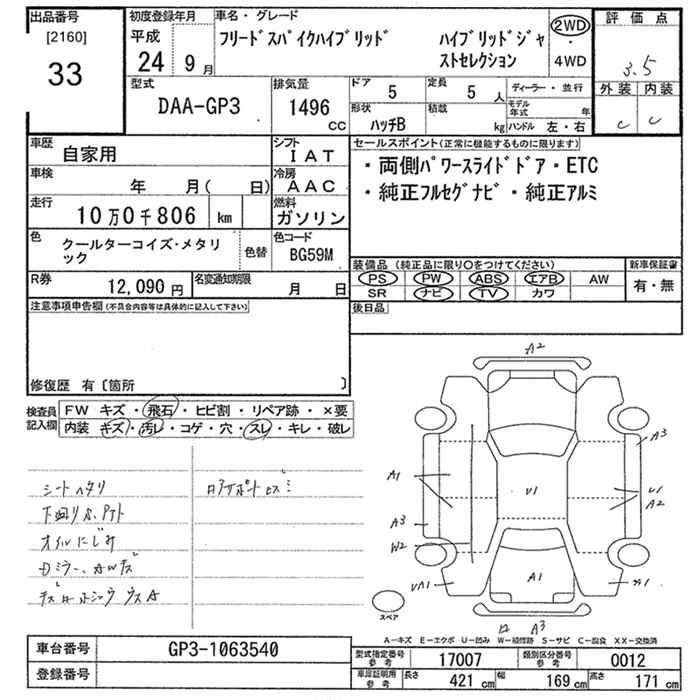 出品番号
[2160]
33
初度登録年月
平成
24 9月
車名・グレード
フリードスパイクハイブリッド ハイブリッドジャストセレクション
2WD
・
4WD
評価点
3.5
外装 内装
C C
型式
DAA-GP3
排気量
1496 CC
ドア 5
定員 5 人
ディーラー・並行
モデル年式 年
形状 ハッチB
積載 kg
ハンドル 左・右
車歴 自家用
シフト IAT
車検 年 月( 日)
冷房 AAC
走行 10万0千806 km
燃料 ガソリン
色 クールターコイズ・メタリック
色替
色コード BG59M
R券 12,090円
名変通知期限 月 日
セールスポイント(正常に機能するものに限ります)
・両側パワースライドドア・ETC
・純正フルセグナビ・純正アルミ
装備品(純正品に限り○をつけてください)
PS PW ABS エアB AW
SR ナビ TV カワ
新車保証書
有・無
後日品
注意事項申告欄(不具合内容等は具体的に記入して下さい)
修復歴 有〔箇所 〕
検査員記入欄
FW キズ・飛石・ヒビ割・リペア跡・×要
内装 キズ・汚レ・コゲ・穴・スレ・キレ・破レ
シートヘタリ
オイルにじみ
A2
A3
A1
U1
U1
A2
A3
W2
A1
A1
A3
スペア
A-キズ E-エクボ U-凹み W-補修跡 S-サビ C-腐食 XX-交換済
車台番号 GP3-1063540
登録番号
型式指定番号 参考 17007
類別区分番号 参考 0012
車庫証明用 参考 長さ 421cm 幅 169cm 高さ 171cm